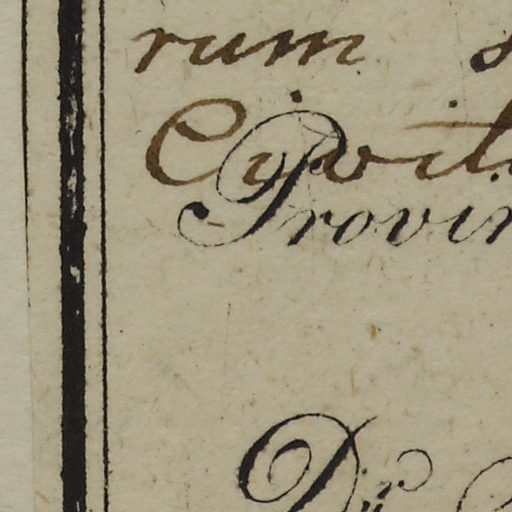 rum
Civit
Provin
Dır